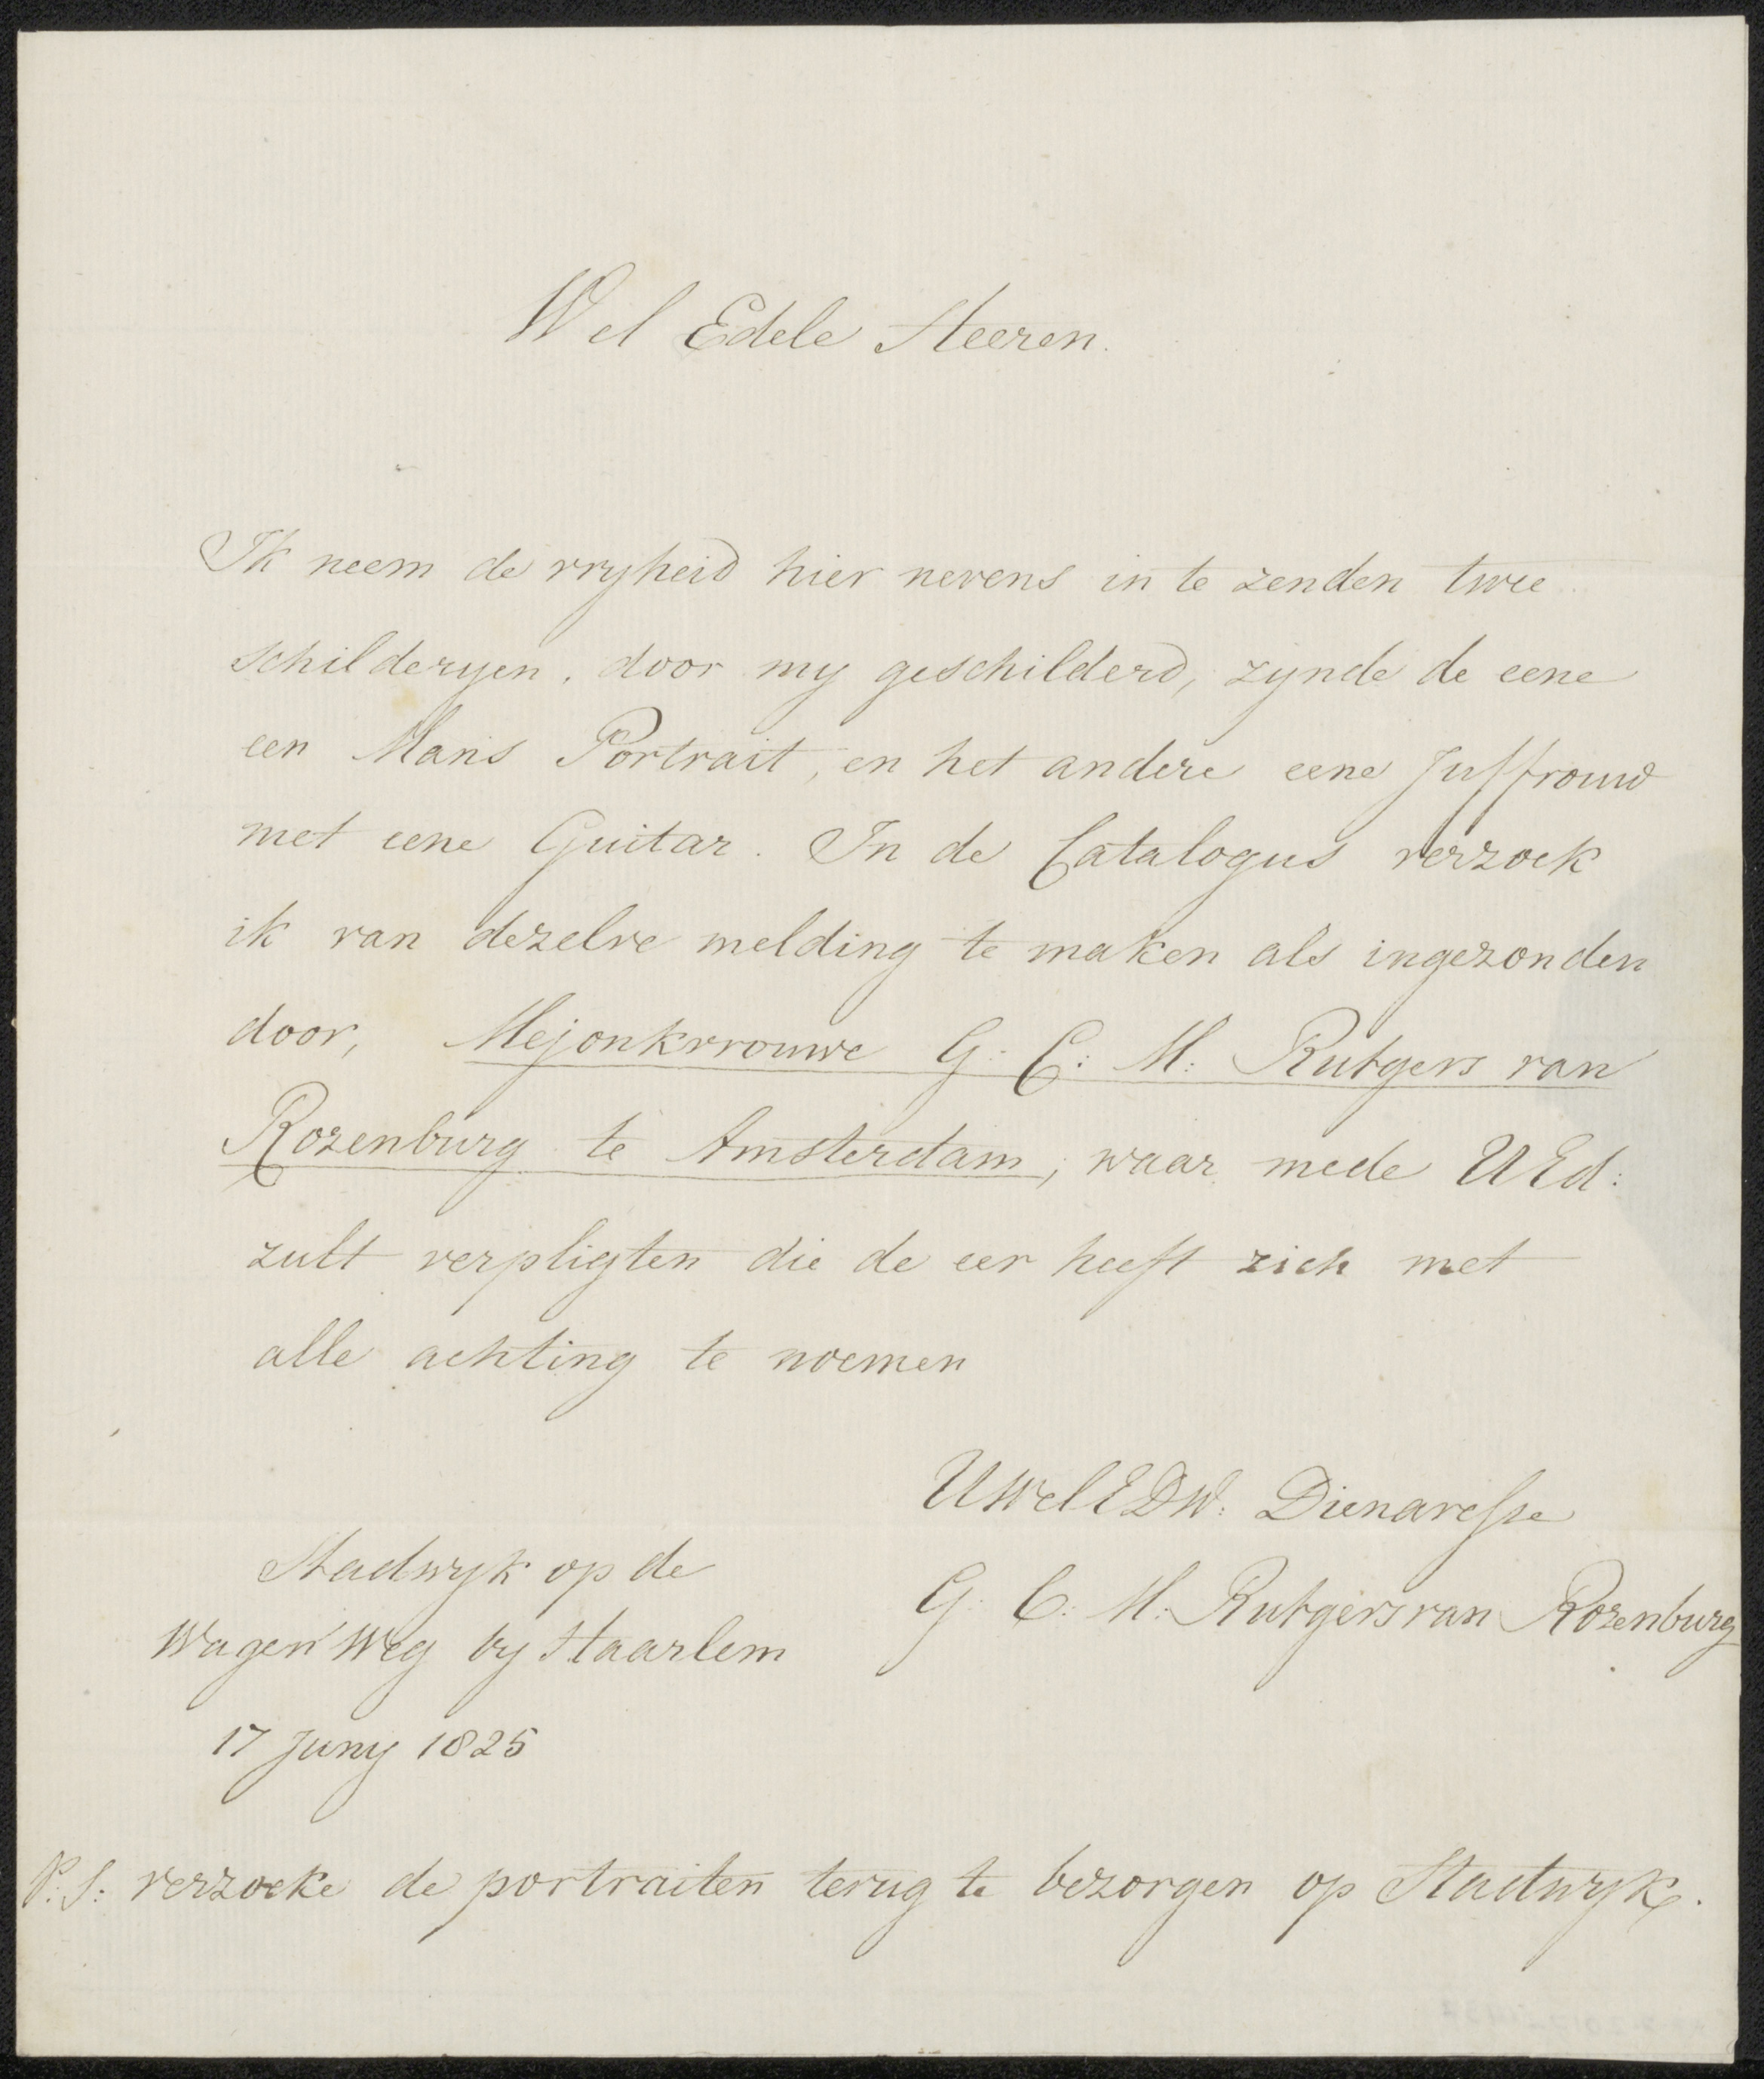 Wel Edele Heeren.
Ik neem de vryheid hier nevens in te zenden twee
schilderyen, door my geschilderd, zynde de eene
een Mans Portrait, en het andere eene Juffrouw
met eene Guitar. In de Catalogus verzoek
ik van dezelve melding te maken als ingezonden
door, Mejonkvrouwe G: C: M: Rutgers van
Rozenburg te Amsterdam; waar mede UEd:
zult verpligten die de eer heeft zich met
alle achting te noemen
UWelEDW: Dienaresse
G: C: M: Rutgers van Rozenburg
Stadwyk op de
Wagen Weg by Haarlem
17 Juny 1825
P:S: verzoeke de portraiten terug te bezorgen op Stadwyk.